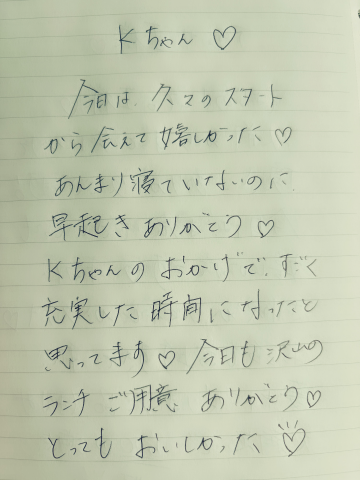 Kちゃん♡
今日は、久々のスタート
から会えて嬉しかった♡
あんまり寝ていないのに、
早起きありがとう♡
Kちゃんのおかげで、すごく
充実した時間になったと
思ってます♡今日も沢山の
ランチご用意ありがとう♡
とってもおいしかった♡